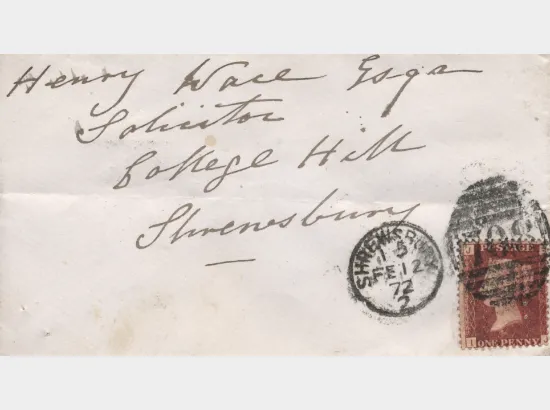 Henry Wace Esqr
Solicitor
College Hill
Shrewsbury
SHREWSBURY
FE 12
72
2
J POSTAGE
I ONE PENNY